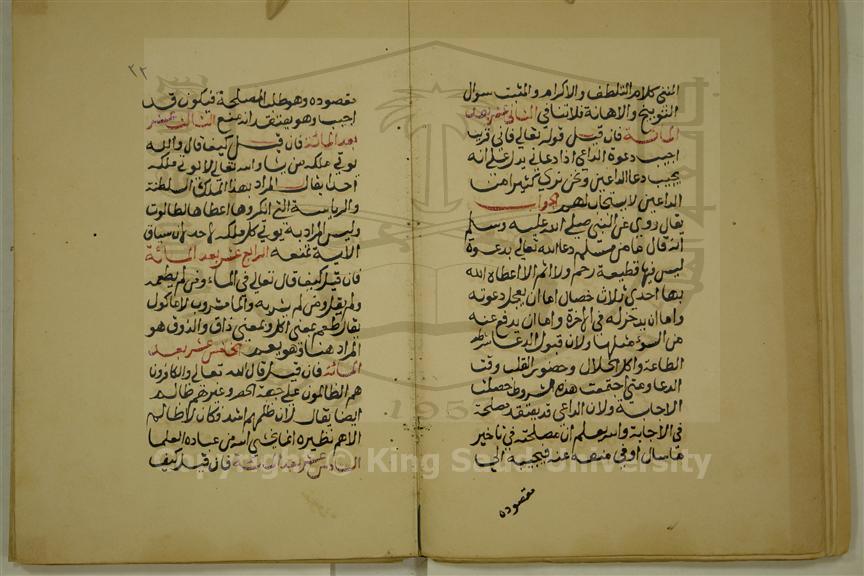 المنفي كلام التلطف والاكرام والمثبت سؤال
التوبيخ والاهانة فلا تنافي الثاني عشر بعد
المائة فان قيل قوله تعالى فاني قريب
اجيب دعوة الداعي اذا دعاني يدل على انه
يجيب دعا الداعين ونحن نرى كثيرا من
الداعين لا يستجاب لهم الجواب
يقال روي عن النبي صلى الله عليه وسلم
انه قال ما من مسلم دعا الله تعالى بدعوة
ليس فيها قطيعة رحم ولا اثم الا اعطاه الله
بها احدى ثلاث خصال اما ان يعجل دعوته
واما ان يدخر له في الاخرة واما ان يدفع عنه
من السوء مثلها ولان قبول الدعا شرطه
الطاعة واكل الحلال وحضور القلب وقت
الدعا ومتى اجتمعت هذه الشروط حصلت
الاجابة ولان الداعي قد يعتقد مصلحة
في الاجابة والله يعلم ان مصلحته في تاخير
ما سال او في منعه عنه فيجيبه الى
مقصوده
٢٢
مقصوده وهو طلب المصلحة فيكون قد
اجيب وهو يعتقد انه منع الثالث عشر
بعد المائة فان قيل كيف قال والله
يوتي ملكه من يشا والله تعالى لا يوتي ملكه
احدا يقال المراد بهذا الملك السلطنة
والرياسة التي انكروها اعطاها لطالوت
وليس المراد به يوتي كل ملكه لاحد لان سياق
الاية يمنعه الرابع عشر بعد المائة
فان قيل كيف قال تعالى في الماء ومن لم يطعمه
ولم يقل ومن لم يشربه والما مشروب لا ماكول
يقال طعم بمعنى اكل وبمعنى ذاق والذوق هو
المراد هنا وهو يعم الخامس عشر بعد
المائة فان قيل قال الله تعالى والكافرون
هم الظالمون على جهة الحصر وغيرهم ظالم
ايضا يقال لان ظلمهم اشد فكان لا ظالم
الا هم نظيره انما يخشى الله من عباده العلما
السادس عشر بعد المائة فان قيل كيف
Copyright © King Saud University
195